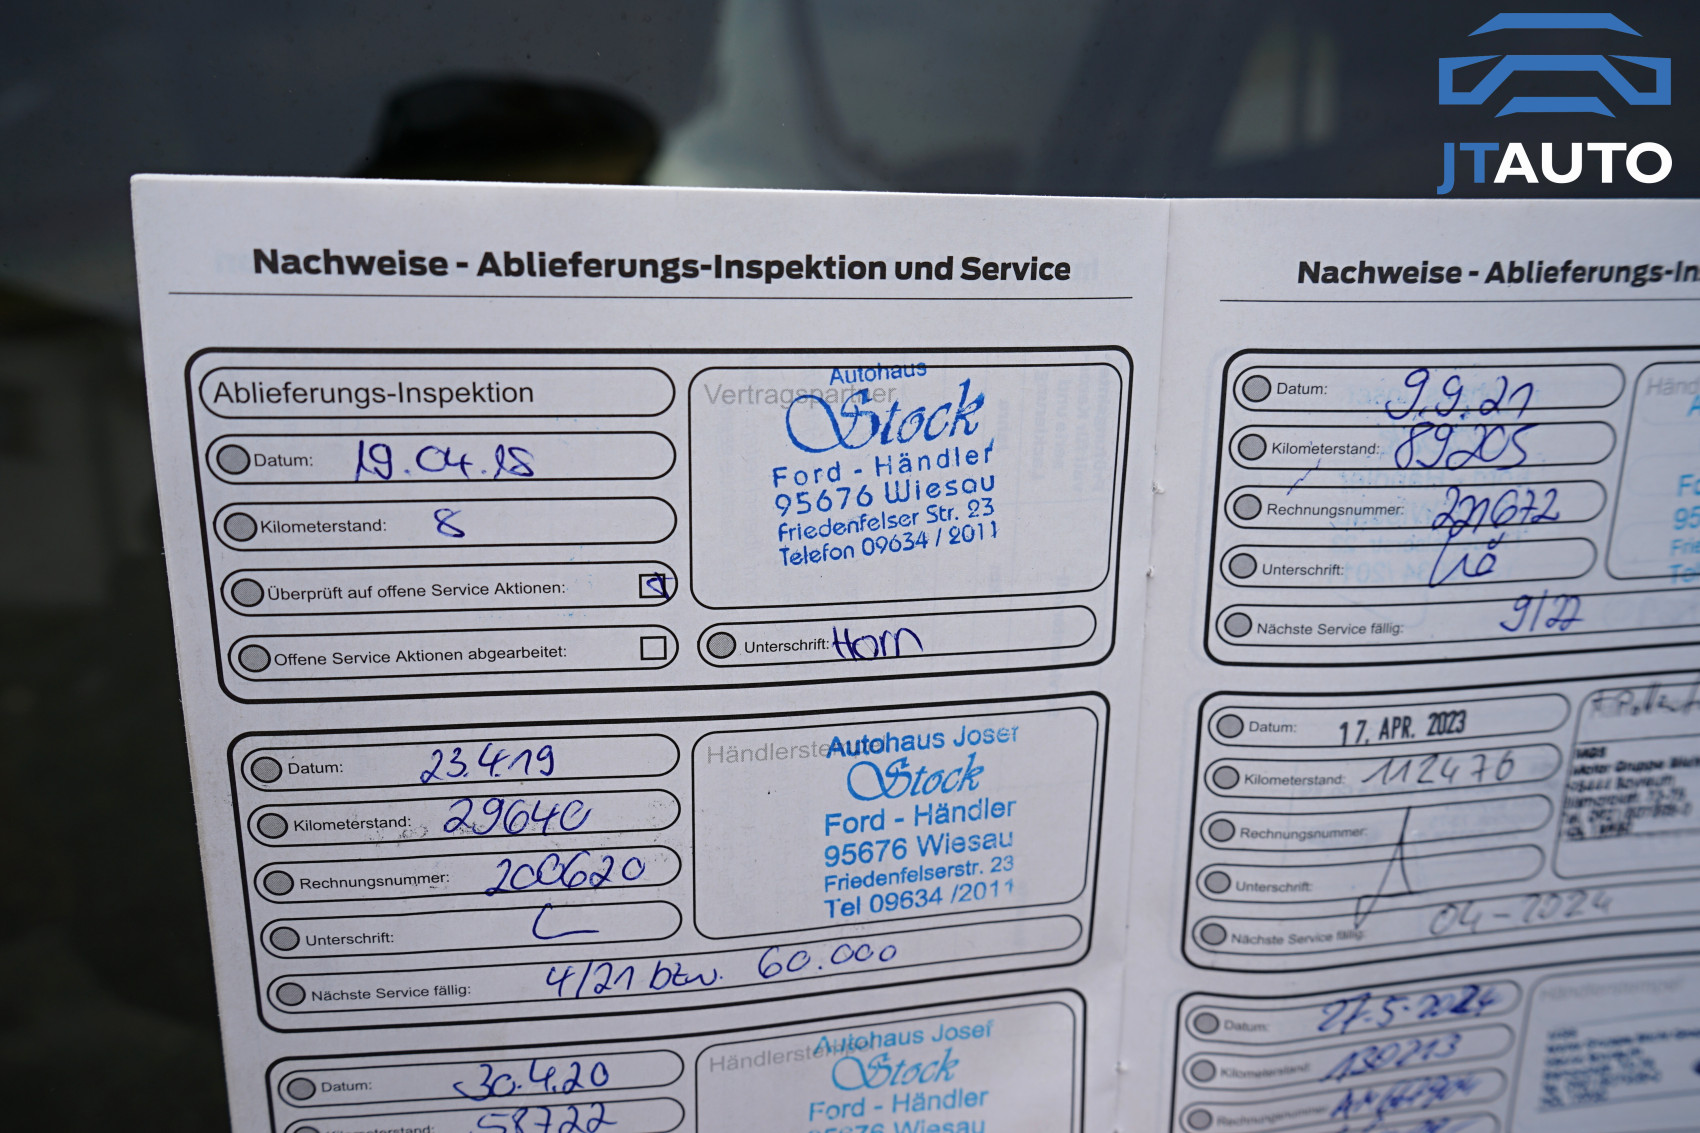 JTAUTO
Nachweise - Ablieferungs-Inspektion und Service
Ablieferungs-Inspektion
Datum: 19.04.18
Kilometerstand: 8
Überprüft auf offene Service Aktionen:
Offene Service Aktionen abgearbeitet:
Vertragspartner
Autohaus
Stock
Ford - Händler
95676 Wiesau
Friedenfelser Str. 23
Telefon 09634 / 2011
Unterschrift: Horn
Datum: 23.4.19
Kilometerstand: 29640
Rechnungsnummer: 200620
Unterschrift:
Nächste Service fällig: 4/21 bzw. 60.000
Händlerstempel
Autohaus Josef
Stock
Ford - Händler
95676 Wiesau
Friedenfelserstr. 23
Tel 09634 /2011
Datum: 30.4.20
Kilometerstand: 58722
Händlerstempel
Autohaus Josef
Stock
Ford - Händler
95676 Wiesau
Nachweise - Ablieferungs-In
Datum: 9.9.21
Kilometerstand: 89205
Rechnungsnummer: 221672
Unterschrift:
Nächste Service fällig: 9/22
Händ
Datum: 17. APR. 2023
Kilometerstand: 112476
Rechnungsnummer:
Unterschrift:
Nächste Service fällig: 04-2024
Datum: 27.5.2024
Kilometerstand: 130213
Rechnungsnummer:
Händlerstempel